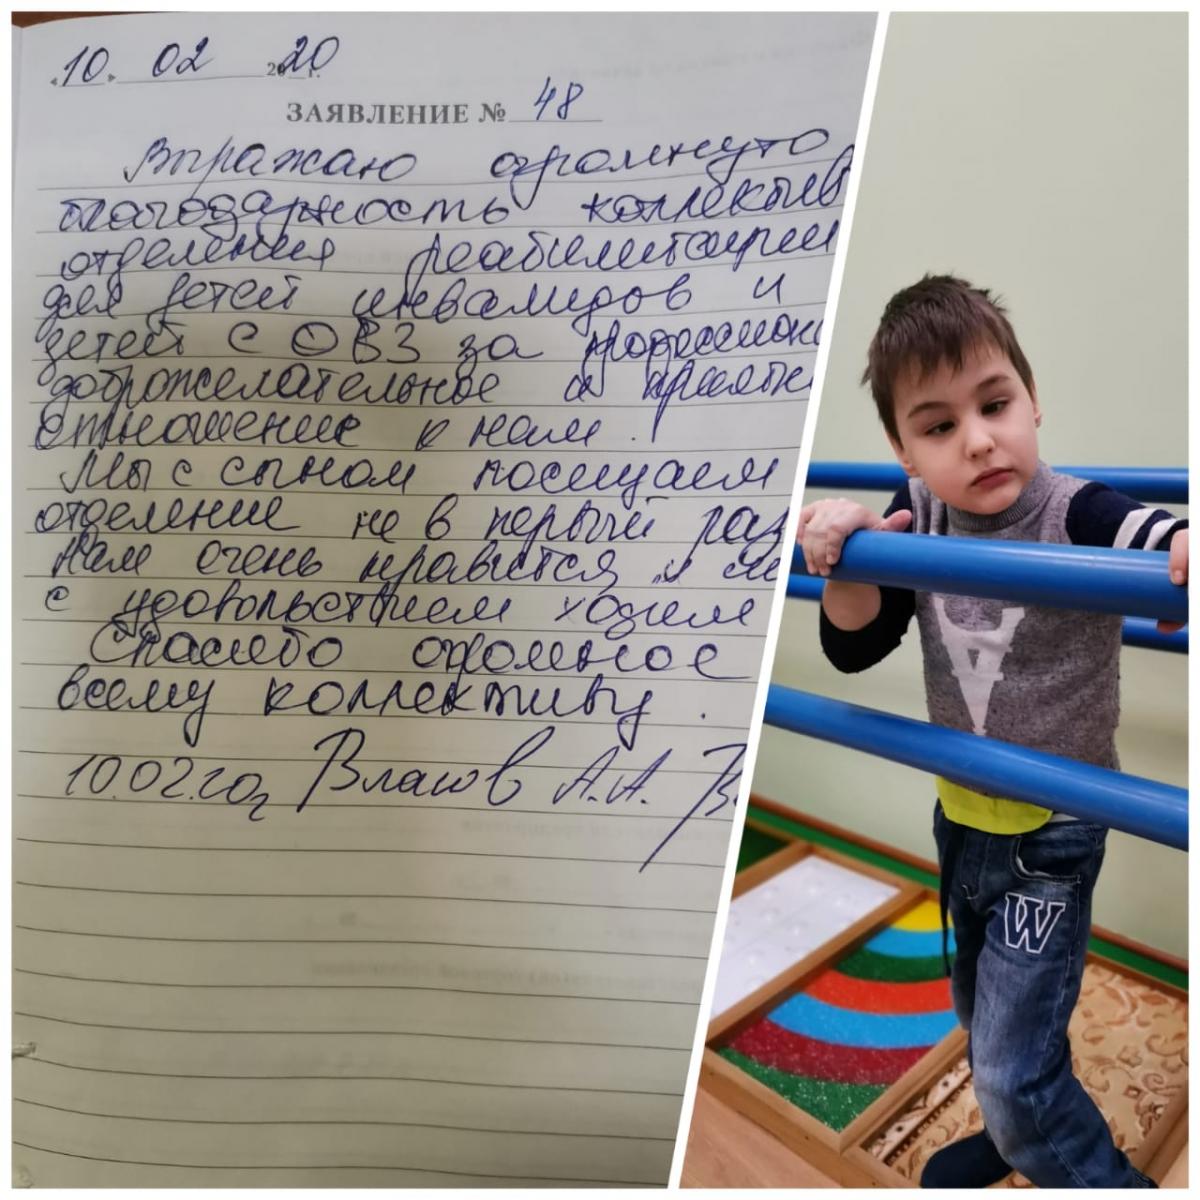 «10» 02 2020 г.
ЗАЯВЛЕНИЕ № 48
Выражаю огромную
благодарность коллектив
отделения реабилитации
для детей инвалидов и
детей с ОВЗ за професси
доброжелательное и
отношение к нам.
Мы с сыном посещаем
отделение не в первый раз
Нам очень нравится и
с удовольствием ходим
Спасибо огромное
всему коллективу.
10.02.20г Власов А.А.
A
W